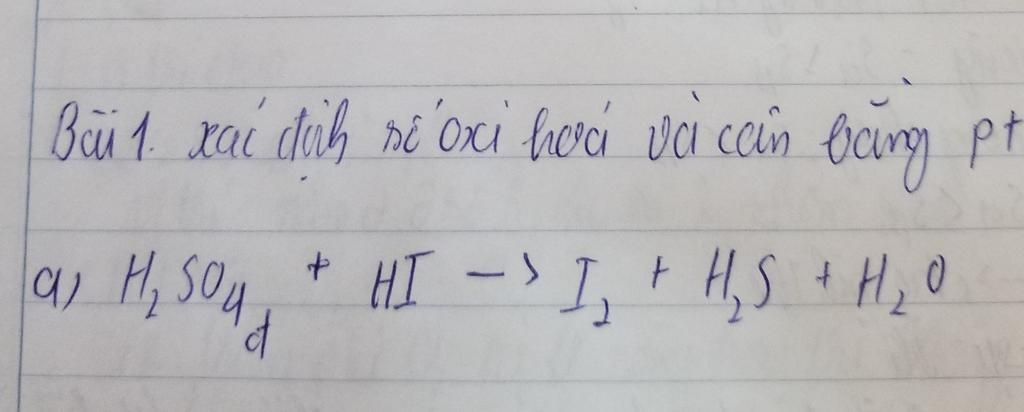 Bài 1. xác định số oxi hoá và cân bằng pt
a) H₂SO₄đ + HI -> I₂ + H₂S + H₂O